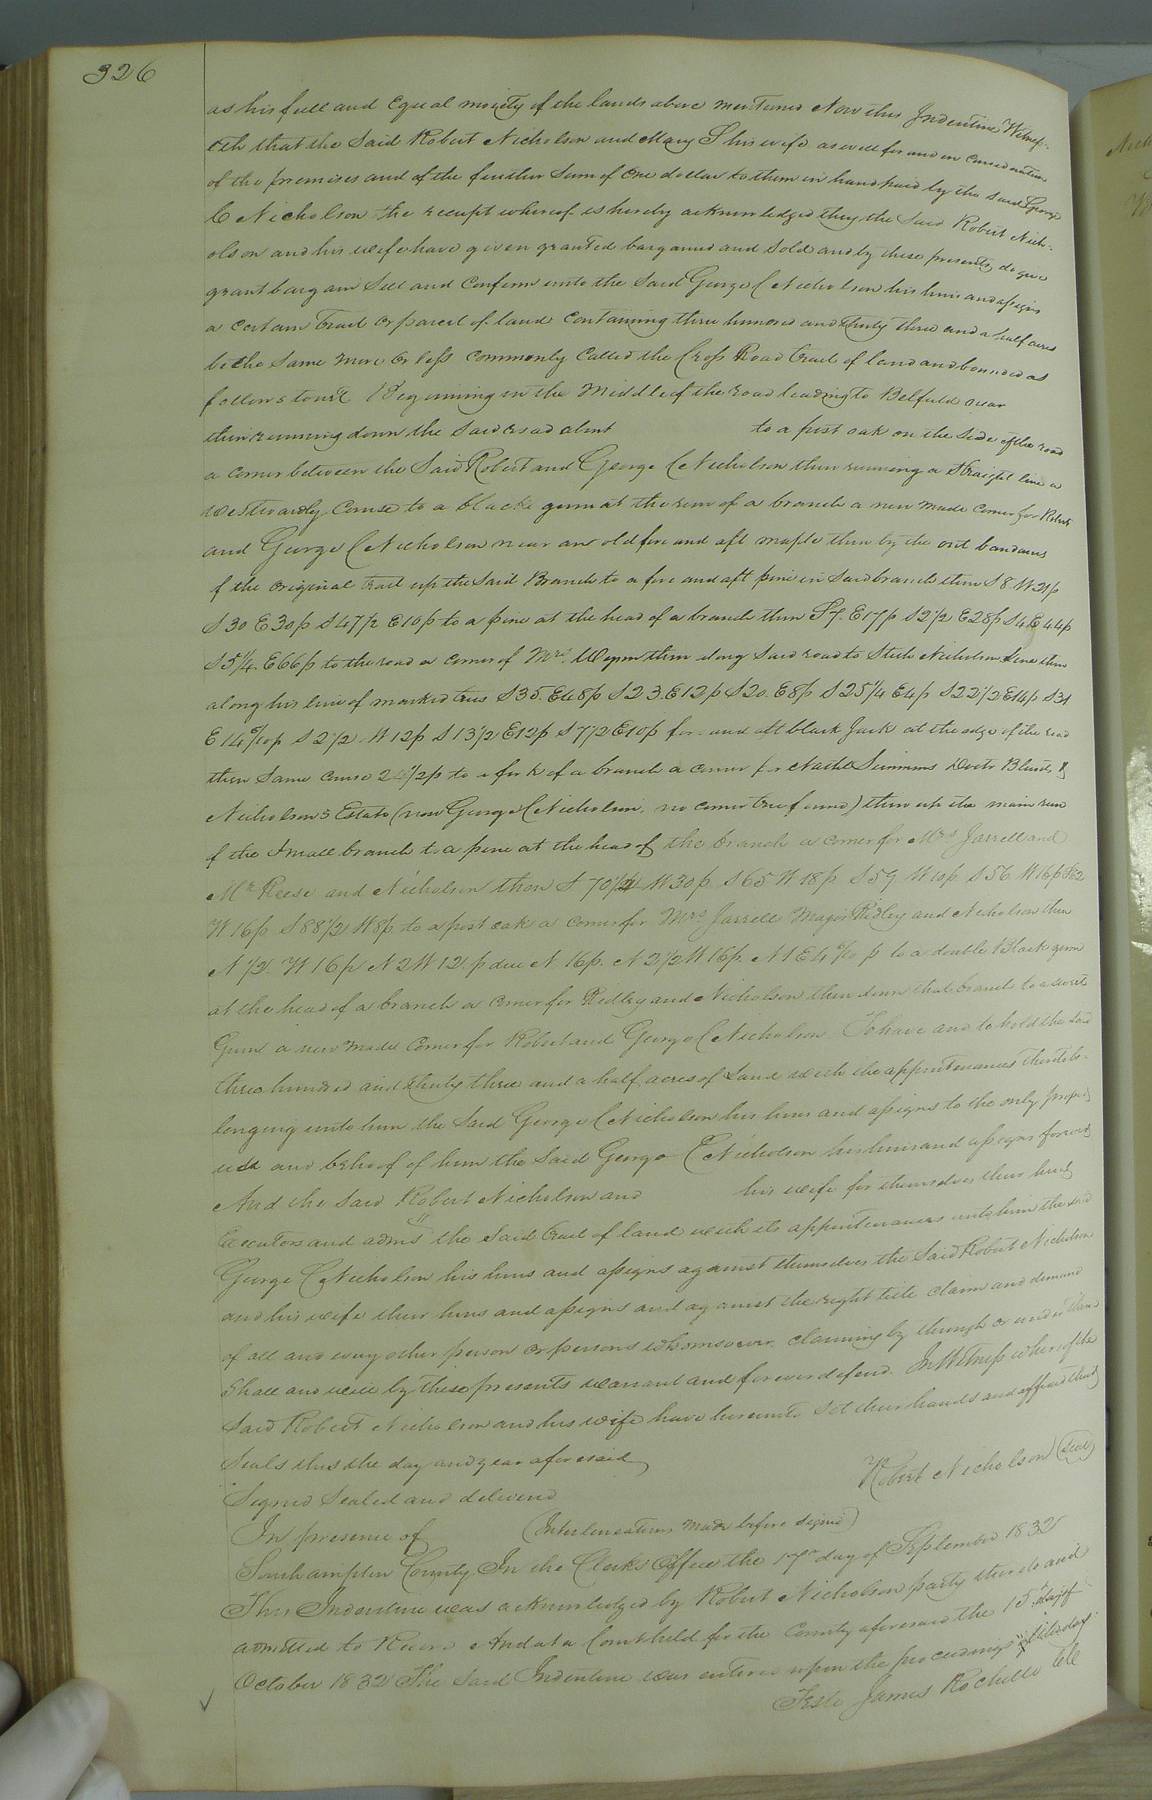 326
as his full and Equal moiety of the lands above mentioned Now this Indenture Witness-
eth that the Said Robert Nicholson and Mary S his wife as well for and in consideration
of the premises and of the further Sum of One dollar to them in hand paid by the said George
C Nicholson the receipt whereof is hereby acknowledged they the Said Robert Nich-
olson and his wife have given granted bargained and Sold and by these presents do give
grant bargain Sell and Confirm unto the Said George C Nicholson his heirs and assigns
a certain tract or parcel of land containing three hundred and thirty three and a half acres
be the Same more or less commonly Called the Cross Road tract of land and bounded as
follows to wit Beginning in the Middle of the road leading to Belfield near
then running down the Said road about to a post oak on the Side of the road
a corner between the Said Robert and George C Nicholson then running a Straight line a
westwardly Course to a black gum at the run of a branch a new made corner for Robert
and George C Nicholson near an old fore and aft maple then by the out bandaries
f the original tract up the Said Branch to a fore and aft pine in Said branch then S 8 W 21p
S 30 E 30p S 47½ E 10p to a pine at the head of a branch then S 7. E 17p S 2½ E 28p S 4 E 44p
S 5¼. E 66p to the road a corner of Mrs. then along Said road to Nicholson line then
along his line of marked trees S 35. E 48p S 23. E 12p S 20. E 8p S 25¼ E 4p S 22½ E 14p S 31
E 14 p S 2½. W 12p S 13½ E 12p S 7½ E 10p for. and aft black Jack at the edge of the road
then Same course p to a fork of a branch a corner for Simmons Doctr Blunt, &
Nicholsons Estate (now George C Nicholson. no corner tree found) then up the main run
of the Small branch to a pine at the head of the branch a corner for Mrs Jarrell and
Mr Reese and Nicholson then S 70 W 30p. S 65 W 18p S 59 W 10p S 56. W 16p S 62
W 16p S 88½ W 8p to a post oak a corner for Mrs Jarrell Major Ridley and Nicholson then
N ½. W 16p N 2 W 12.p due N 16p. N 2½ W 16p. N 1 E p to a double Black gum
at the head of a branch a corner for Ridley and Nicholson then down that branch to a sweet
Gum a new made Corner for Robert and George C Nicholson To have and to hold the said
three hundred and thirty three and a half acres of Land with the appurtenances thereto be-
longing unto him the Said George C Nicholson his heirs and assigns to the only proper
use and behoof of him the Said George C Nicholson his heirs and assigns forever
And the Said Robert Nicholson and his wife for themselves their heirs
Executors and admrs the Said tract of land with its appurtenances unto him the said
George C Nicholson his heirs and assigns against themselves the Said Robert Nicholson
and his wife their heirs and assigns and against the right title claim and demand
of all and every other person or persons whomsoever. claiming by through or under them
Shall and will by these presents warrant and forever defend. In Witness whereof the
Said Robert Nicholson and his wife have hereunto Set their hands and affixed their
Seals this the day and year aforesaid
Robert Nicholson (Seal)
Signed Sealed and delivered
In presence of (Interlineations made before Signed)
Southampton County In the Clerks Office the 17th day of September 1832
This Indenture was acknowledged by Robert Nicholson party thereto and
admitted to Record And at a Court held for the County aforesaid the 15th day of
October 1832 The Said Indenture was entered upon the proceedings
Teste James Rochelle Clk